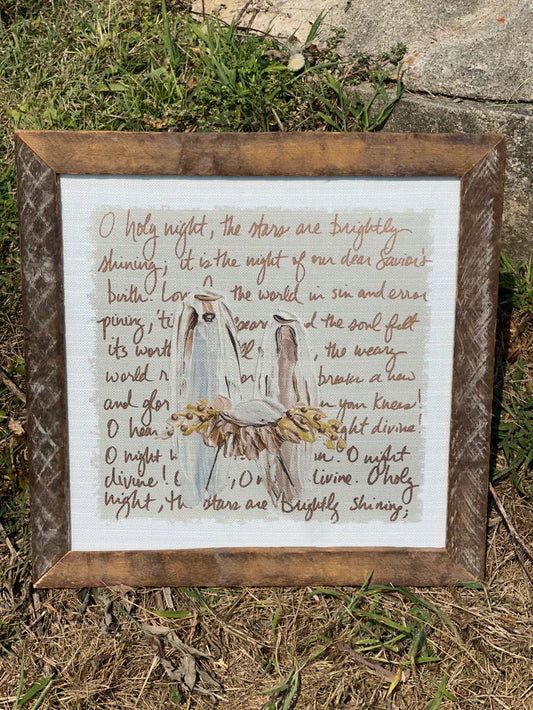 O holy night, the stars are brightly
shining; it is the night of our dear Savior's
birth. the world in sin and error
pining, and the soul felt
its worth the weary
world
and your knees!
O night divine!
O night O night
divine! O divine. O holy
night, the stars are brightly shining;